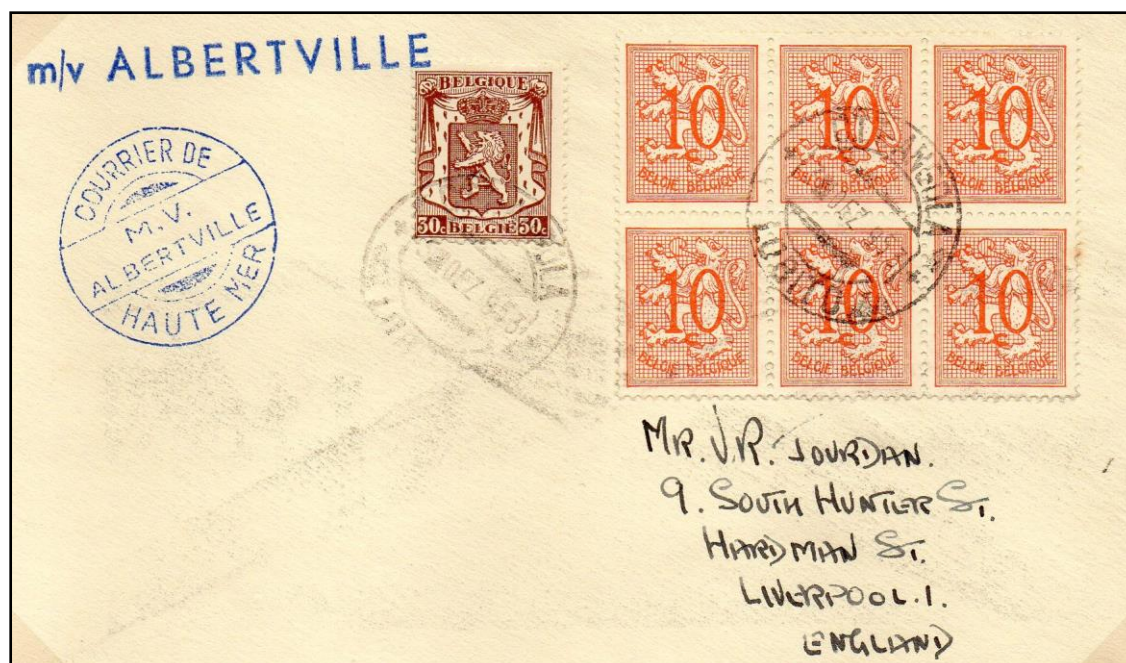 m/v ALBERTVILLE
COURRIER DE
M.V.
ALBERTVILLE
HAUTE MER
BELGIQUE
30c BELGIË 30c
10 10 10
BELGIE BELGIQUE BELGIE BELGIQUE BELGIE BELGIQUE
10 10 10
BELGIE BELGIQUE BELGIE BELGIQUE BELGIE BELGIQUE
DEZ
MR. V.R. JOURDAN.
9. SOUTH HUNTER ST.
HARDMAN ST.
LIVERPOOL. 1.
ENGLAND